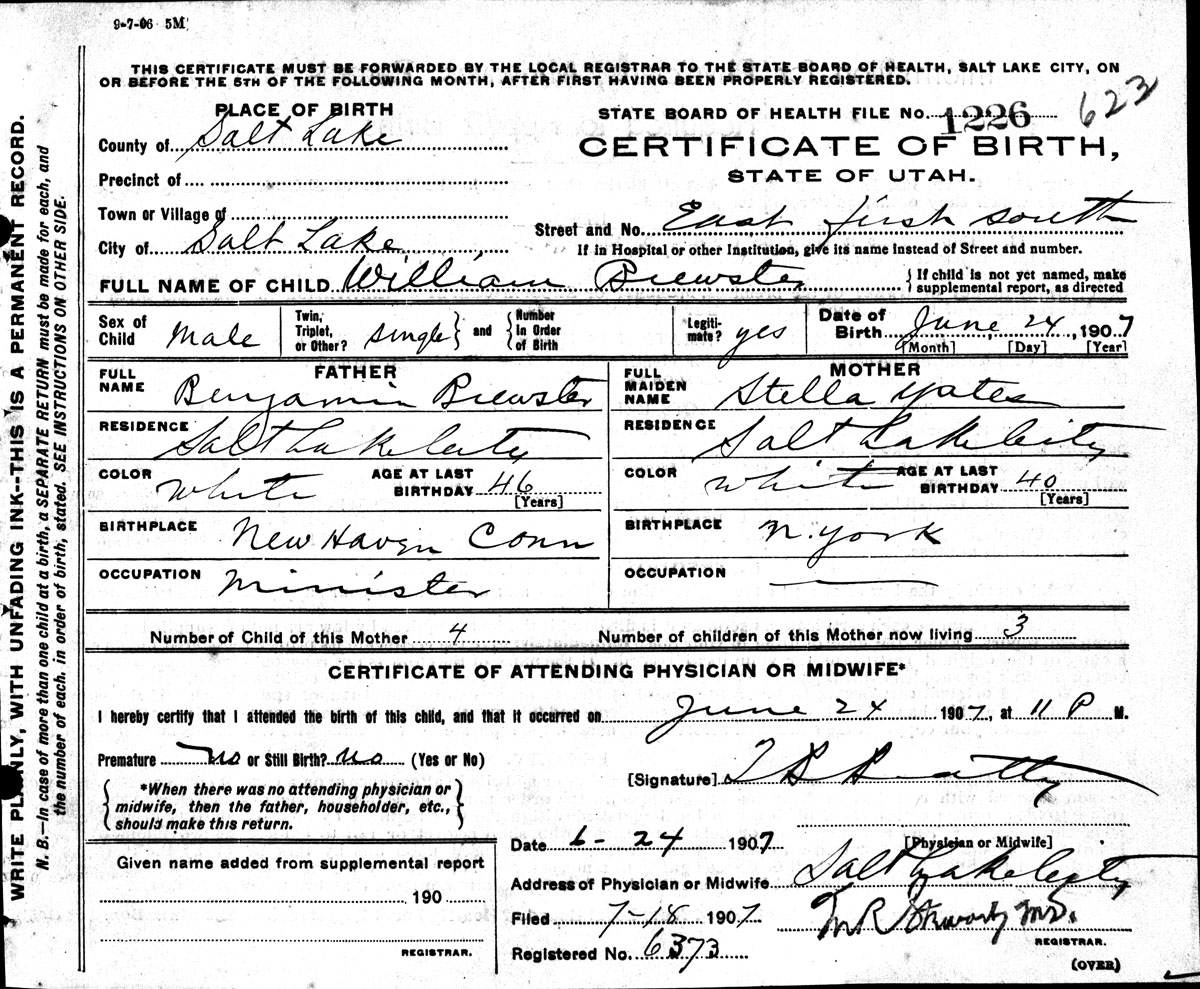 9-7-06 5M
THIS CERTIFICATE MUST BE FORWARDED BY THE LOCAL REGISTRAR TO THE STATE BOARD OF HEALTH, SALT LAKE CITY, ON
OR BEFORE THE 5TH OF THE FOLLOWING MONTH, AFTER FIRST HAVING BEEN PROPERLY REGISTERED.
PLACE OF BIRTH
STATE BOARD OF HEALTH FILE No. 1226 623
County of Salt Lake
CERTIFICATE OF BIRTH,
Precinct of
STATE OF UTAH.
Town or Village of
Street and No. East first south
City of Salt Lake
If in Hospital or other Institution, give its name instead of Street and number.
FULL NAME OF CHILD William Brewster
If child is not yet named, make
supplemental report, as directed
Sex of Child Male
Twin, Triplet, or Other? single and Number in Order of Birth
Legitimate? yes
Date of Birth June 24, 1907
[Month] [Day] [Year]
FATHER
FULL NAME Benjamin Brewster
RESIDENCE Salt Lake City
COLOR White AGE AT LAST BIRTHDAY 46
[Years]
BIRTHPLACE New Haven Conn
OCCUPATION Minister
MOTHER
FULL MAIDEN NAME Stella Yates
RESIDENCE Salt Lake City
COLOR White AGE AT LAST BIRTHDAY 40
[Years]
BIRTHPLACE N. York
OCCUPATION
Number of Child of this Mother 4 Number of children of this Mother now living 3
CERTIFICATE OF ATTENDING PHYSICIAN OR MIDWIFE*
I hereby certify that I attended the birth of this child, and that it occurred on June 24 1907, at 11 P M.
Premature No or Still Birth? No (Yes or No)
[Signature] T B Beatty
*When there was no attending physician or
midwife, then the father, householder, etc.,
should make this return.
[Physician or Midwife]
Date 6-24 1907
Given name added from supplemental report
190
REGISTRAR.
Address of Physician or Midwife Salt Lake City
Filed 7-18 1907 M.D.
REGISTRAR.
Registered No. 6373
(OVER)
WRITE PLAINLY, WITH UNFADING INK--THIS IS A PERMANENT RECORD.
N. B.—In case of more than one child at a birth, a SEPARATE RETURN must be made for each, and
the number of each, in order of birth, stated. SEE INSTRUCTIONS ON OTHER SIDE.